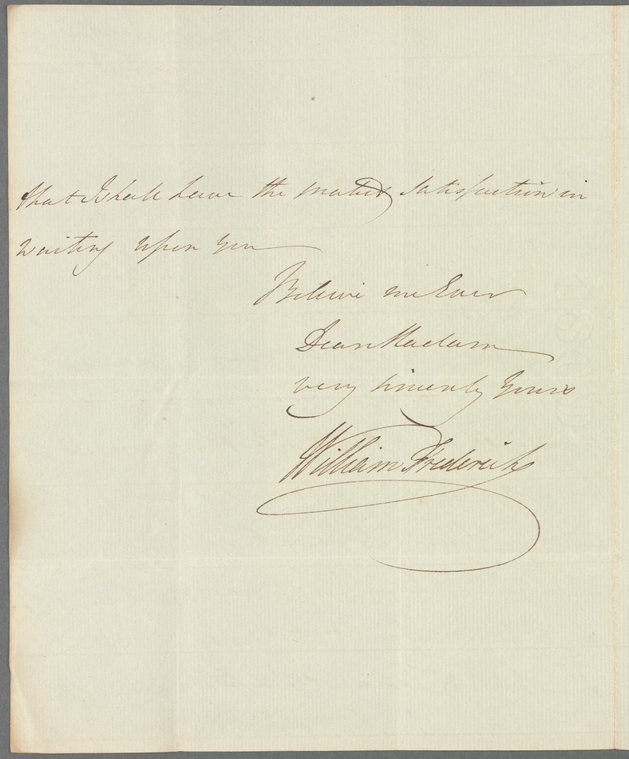 that I shall have the greatest satisfaction in
waiting upon you
Believe me Ever
Dear Madam
very sincerely Yours
William Frederick